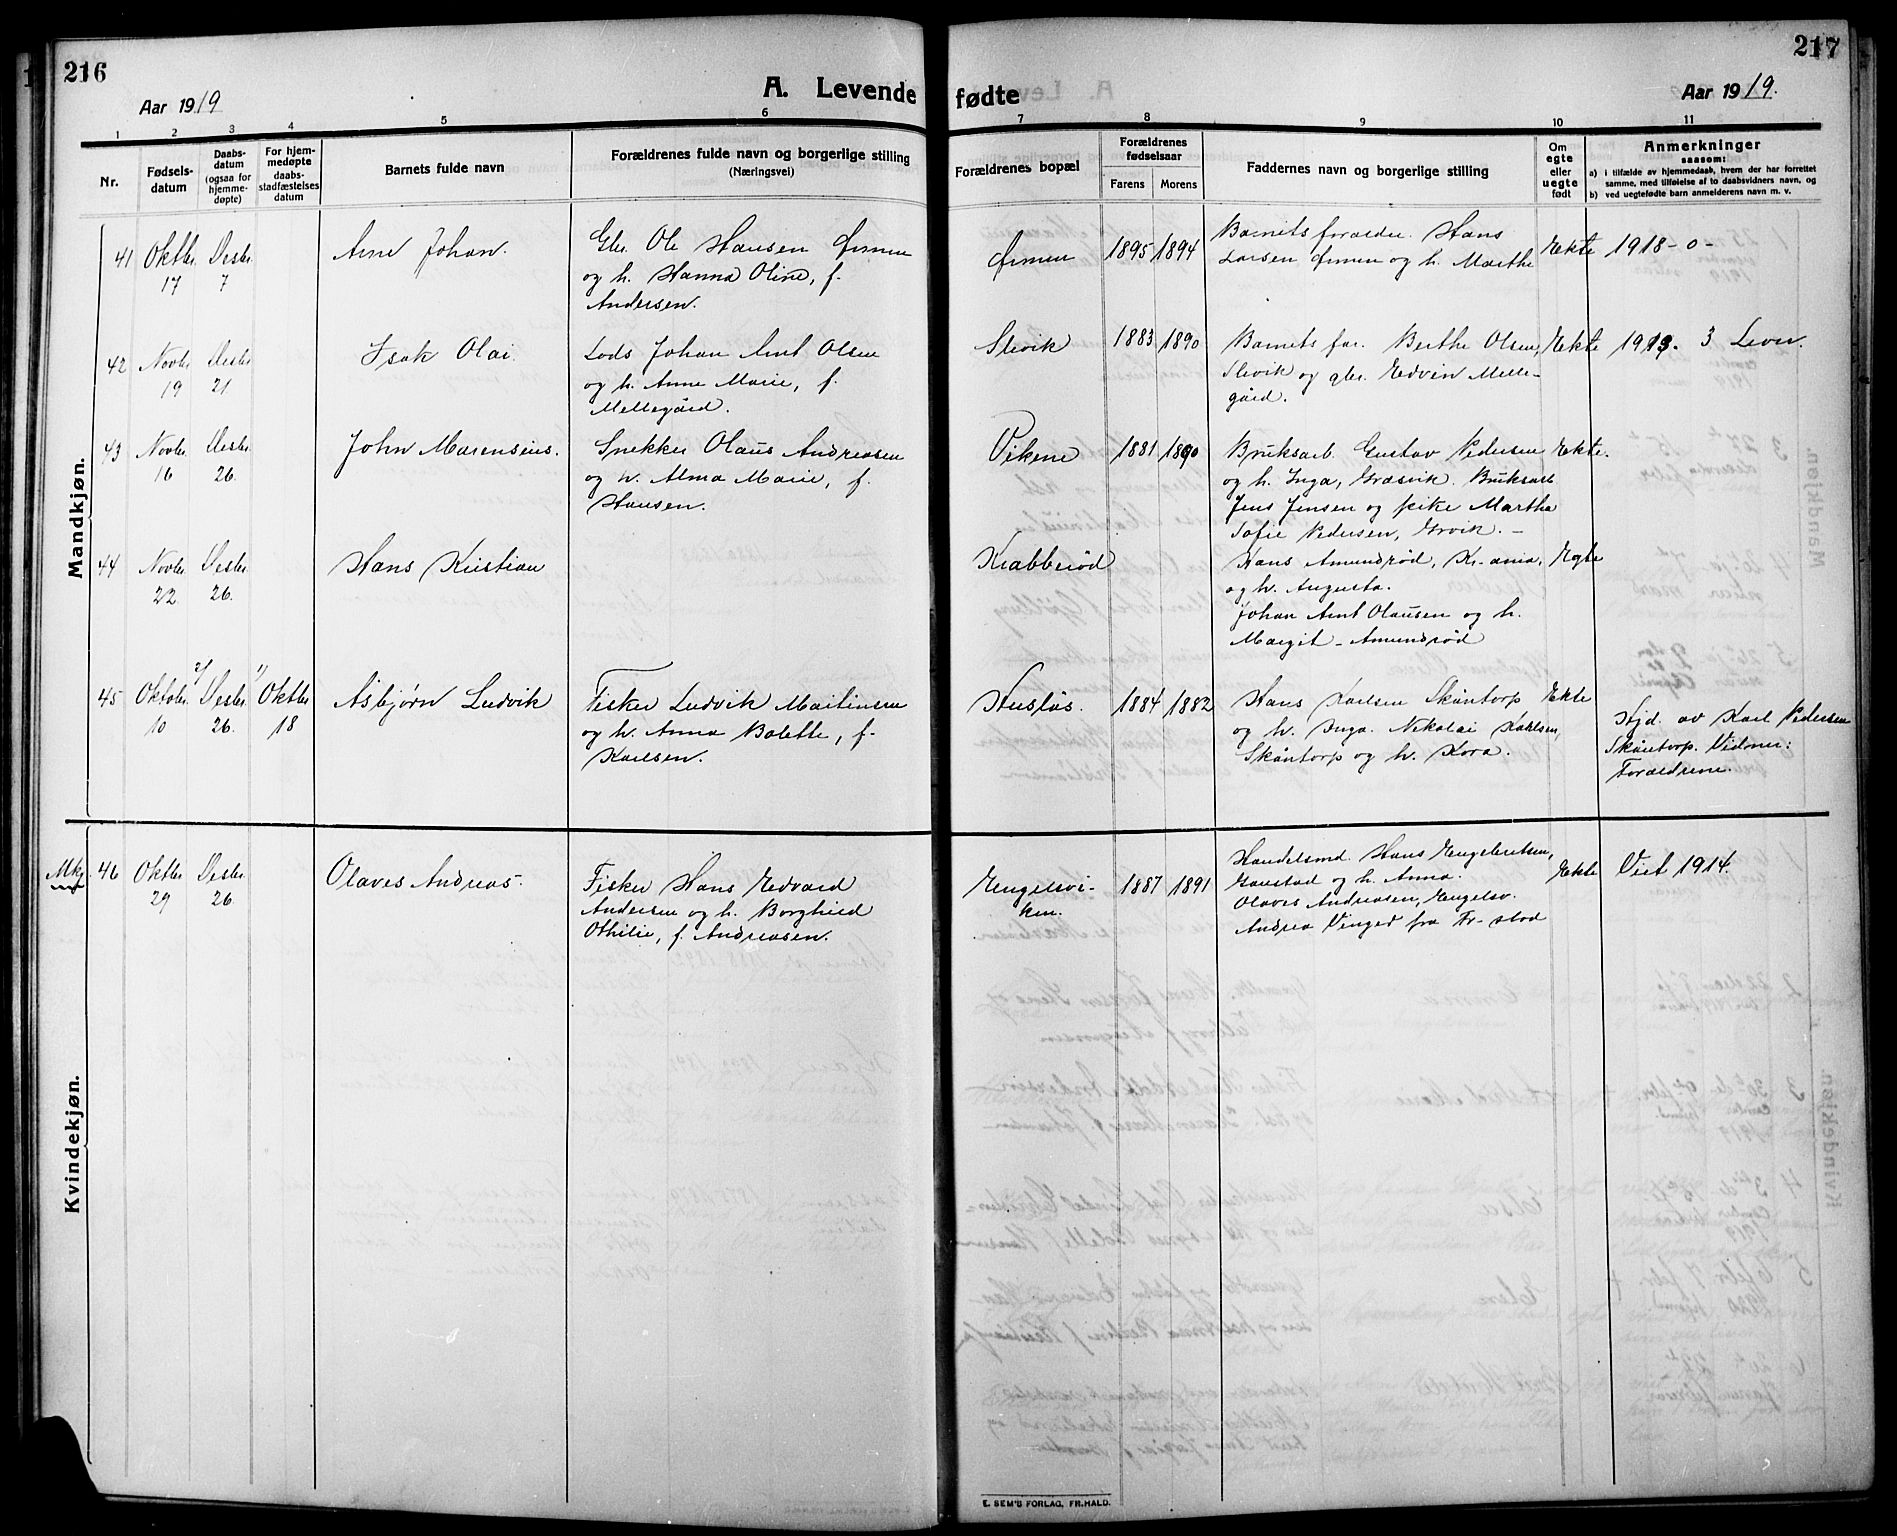 216
Aar 1919
A. Levende
1 2 3 4 5 6
Nr.
Fødsels-
datum
Daabs-
datum
(ogsaa for
hjemme-
døpte)
For hjem-
medøpte
daabs-
stadfæstelses
datum
Barnets fulde navn
Forældrenes fulde navn og borgerlige stilling
(Næringsvei)
Mandkjøn.
41 Oktbr. Desbr. Arne Johan. Gbr. Ole Hansen
17 7 og h. Hanna Oline, f.
Andersen.
42 Novbr. Desbr. Isak Olai. Lods Johan Arnt Olsen
19 21. og h. Anne Marie, f.
Mellegård.
43 Novbr. Desbr. John Marensius. Snekker Olaus Andreasen
16 26. og h. Alma Marie, f.
Hansen.
44 Novbr. Desbr. Hans Kristian
22. 26.
45 Oktober 2/ Desbr. 1/ Oktbr Asbjørn Ludvik Fisker Ludvik Martinsen
10 26. 18 og h. Anna Bolette, f.
Karlsen.
Mkj. 46 Oktbr. Desbr. Olaves Andreas. Fisker Hans Edvard
29 26. Andersen og h. Borghild
Othilie, f. Andreasen.
Kvindekjøn.
217
fødte
Aar 1919.
7 8 9 10 11
Forældrenes bopæl
Forældrenes
fødselsaar
Farens Morens
Faddernes navn og borgerlige stilling
Om
egte
eller
uegte
født
Anmerkninger
saasom:
a) i tilfælde av hjemmedaab, hvem der har forrettet
samme, med tilføielse af to daabsvidners navn, og
b) ved uegtefødte barn anmelderens navn m. v.
1895 1894 Barnets forældre. Hans Ekte 1918 - 0 -
Larsen og h. Marthe
Slevik 1883 1890 Barnets far. Berthe Olsen, Ekte 1913. 3 Lever.
Slevik og gbr. Edvin Melle-
gård.
Vikene 1881 1890 Bruksarb. Gustav Pedersen Ekte.
og h. Inga, Græsvik. Bruksarb.
Jens Jensen og pike Martha
Sofie Pedersen,
Krabberød Hans Amundrød, Kr-ania, Egte
og h. Augusta.
Johan Arnt Olausen og h.
Margit - Amundrød
Husløs. 1884 1882 Hans Karlsen Skåntorp Ekte
og h. Inga. Nikolai Karlsen,
Skåntorp og h. Kora.
Hjd. av Karl Pedersen
Skåntorp. Vidner:
Forældrene.
Engelsvi- 1887 1891 Handelsmd. Hans Engebretsen, Ekte Viet 1914.
ken. Gaustad og h. Anna.
Olaves Andreasen, Engelsv.
Andrea Vinger fra Fr-stad
E. SEM'S FORLAG, FR.HALD.